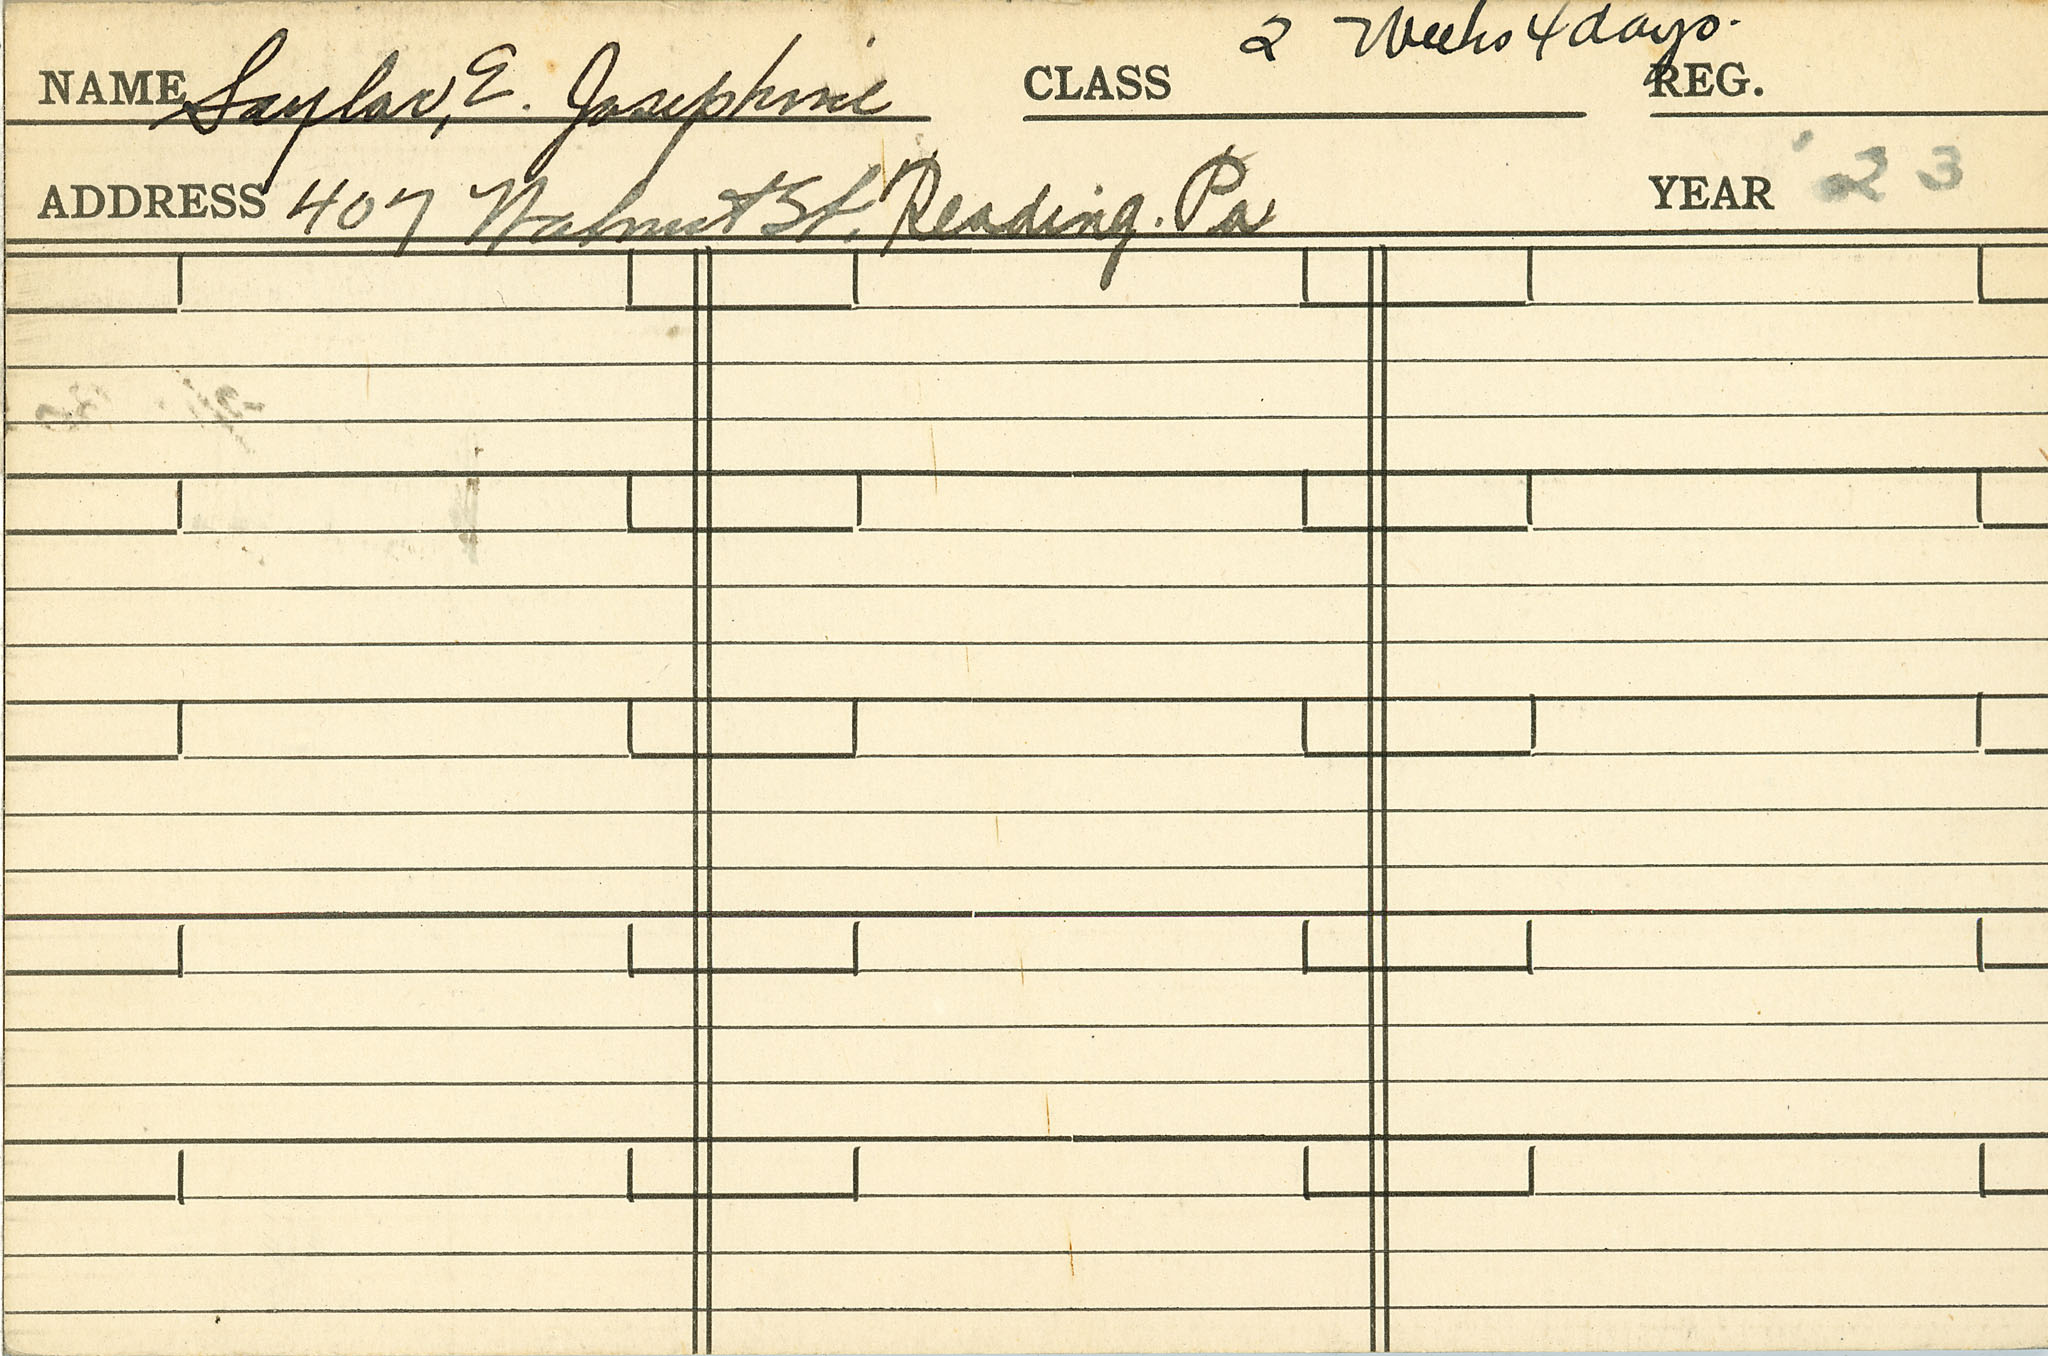 2 Weeks 4 days.
NAME Saylor, E. Josephine CLASS REG.
ADDRESS 407 Walnut St. Reading. Pa YEAR '23